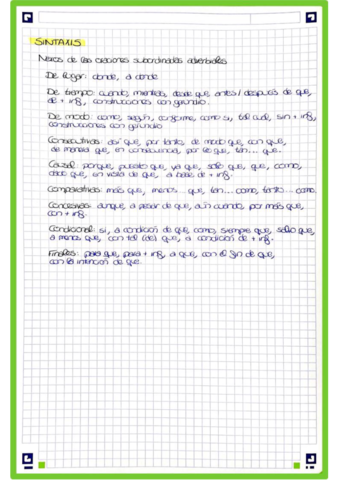 SINTAXIS
Nexos de las oraciones subordinadas adverbiales
De lugar: donde, a donde
De tiempo: cuando, mientras, desde que, antes / después de que,
de + inf, construcciones con gerundio.
De modo: como, según, conforme, como si, tal cual, sin + inf,
construcciones con gerundio
Consecutivas: así que, por tanto, de modo que, con que,
de manera que, en consecuencia, por lo que, tan... que.
Causal: porque, puesto que, ya que, que, como,
dado que, en vista de que, a base de + inf.
Comparativas: más que, menos... que, tan... como, tanto... como.
Concesivas: aunque, a pesar de que, aún cuando, por más que,
con + inf.
Condicional: si, a condición de que, como, siempre que, salvo que,
a menos que, con tal (de) que, a condición de + inf.
Finales: para que, para + inf, a que, con el fin de que,
con la intención de que.